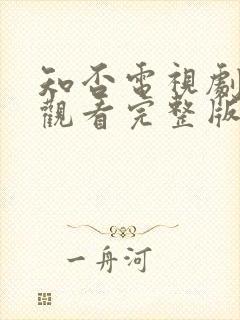 知否電視劇
觀看完整版
一舟河